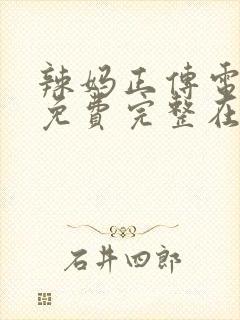 辣妈正傅电
免費完整在
石井四郎